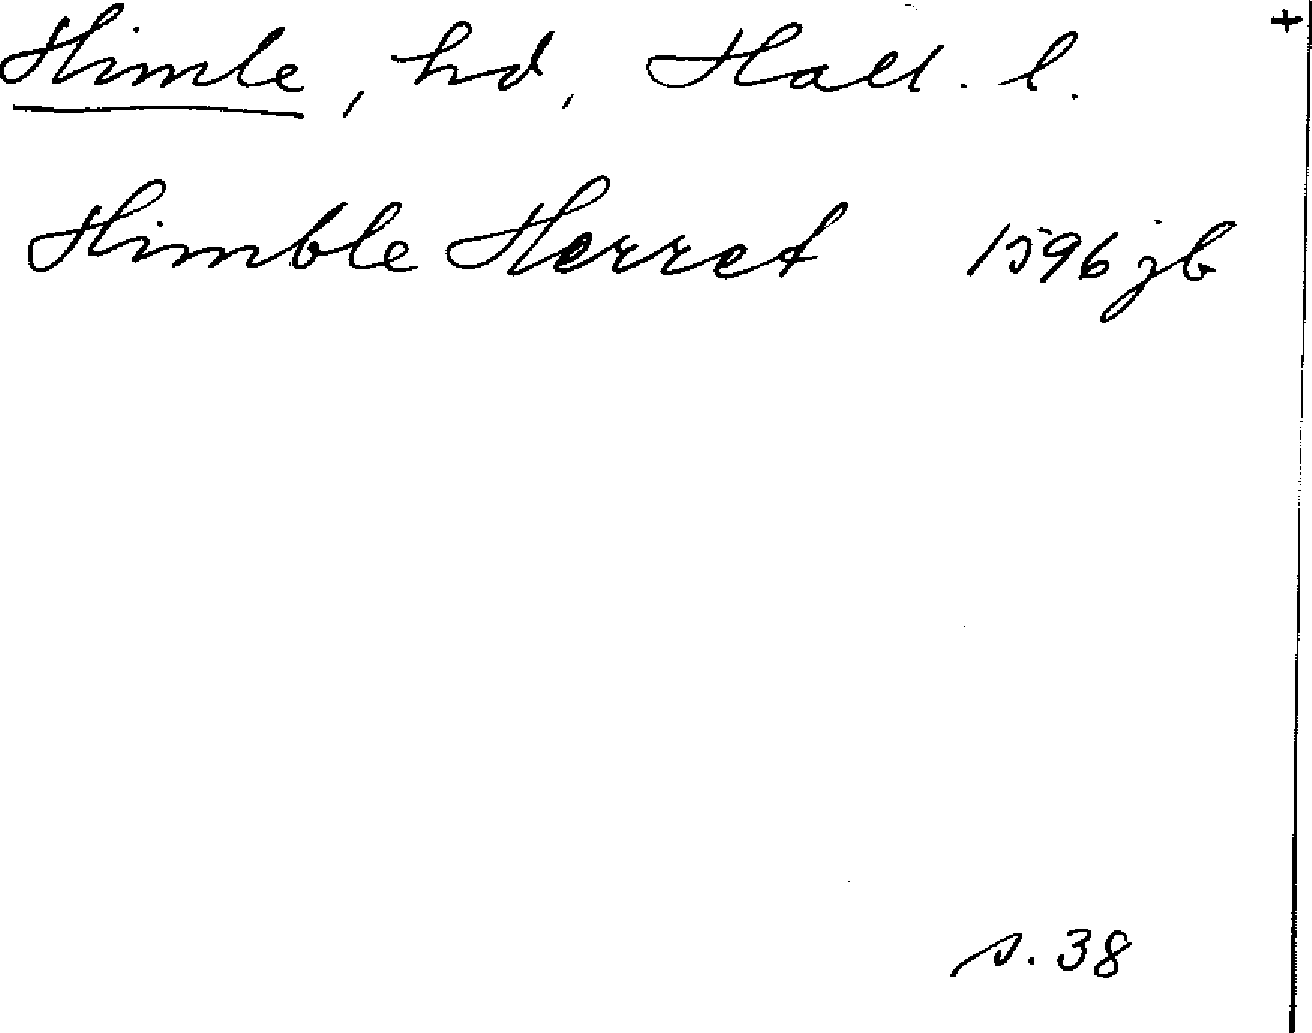 +
Himle, hd, Hall. l.
Himble Herret 1596 jb
s. 38